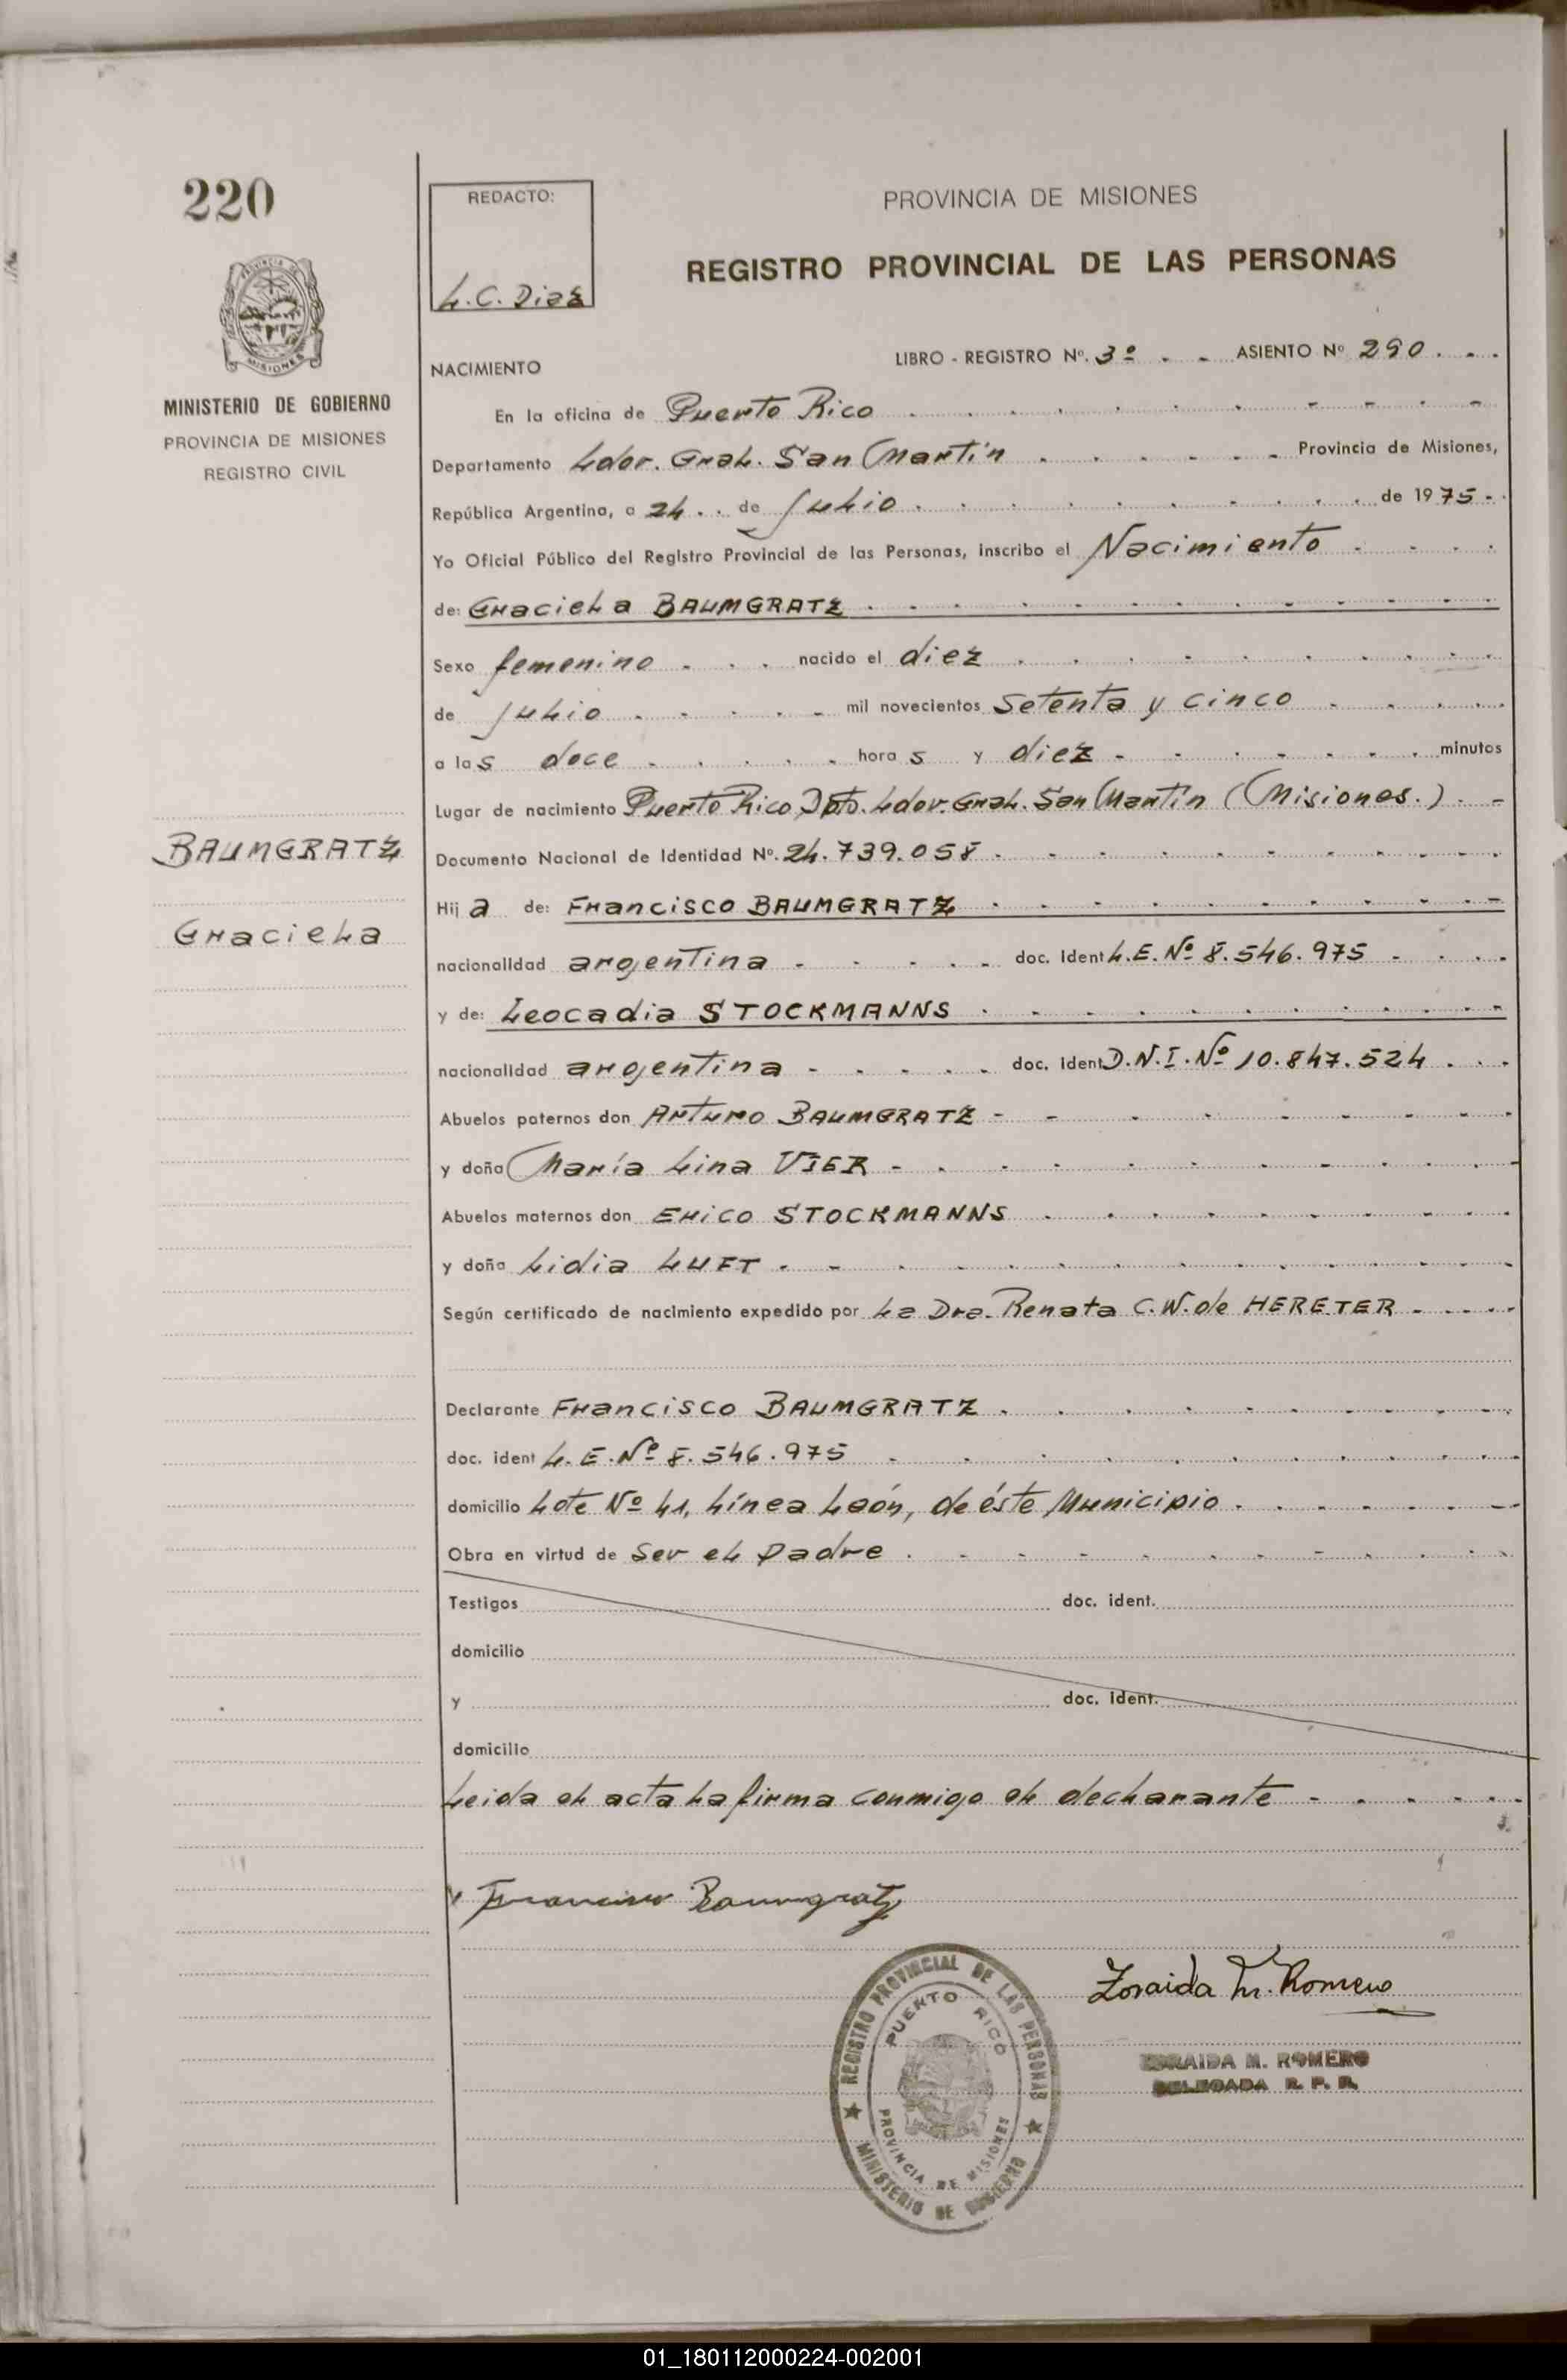 220
REDACTO:
L.C. Diaz
PROVINCIA DE MISIONES
REGISTRO PROVINCIAL DE LAS PERSONAS
PROVINCIA DE
MISIONES
MINISTERIO DE GOBIERNO
PROVINCIA DE MISIONES
REGISTRO CIVIL
NACIMIENTO
LIBRO - REGISTRO Nº. 3º ASIENTO Nº 290
En la oficina de Puerto Rico
Departamento Ldor. Gral. San Martín Provincia de Misiones,
República Argentina, a 24 de Julio de 1975
Yo Oficial Público del Registro Provincial de las Personas, inscribo el Nacimiento
de: Graciela BAUMGRATZ
Sexo femenino nacido el diez
de Julio mil novecientos setenta y cinco
a las doce horas y diez minutos
Lugar de nacimiento Puerto Rico, Dpto. Ldor. Gral. San Martín (Misiones.)
BAUMGRATZ
Graciela
Documento Nacional de Identidad Nº. 24.739.058
Hija de: Francisco BAUMGRATZ
nacionalidad argentina doc. Ident L.E. Nº 8.546.975
y de: Leocadia STOCKMANNS
nacionalidad argentina doc. ident D.N.I. Nº 10.847.524
Abuelos paternos don Arturo BAUMGRATZ
y doña María Lina VIER
Abuelos maternos don Erico STOCKMANNS
y doña Lidia LUFT
Según certificado de nacimiento expedido por La Dra. Renata C.W. de HERETER
Declarante Francisco BAUMGRATZ
doc. ident L.E. Nº 8.546.975
domicilio Lote Nº 41, Línea León, de éste Municipio
Obra en virtud de ser el padre
Testigos doc. ident.
domicilio
y doc. ident.
domicilio
Leida el acta la firma conmigo el declarante
Francisco Baumgratz
REGISTRO PROVINCIAL DE LAS PERSONAS
PUERTO RICO
PROVINCIA DE MISIONES
MINISTERIO DE GOBIERNO
Zoraida M. Romero
ZORAIDA M. ROMERO
DELEGADA R. P. P.
01_180112000224-002001